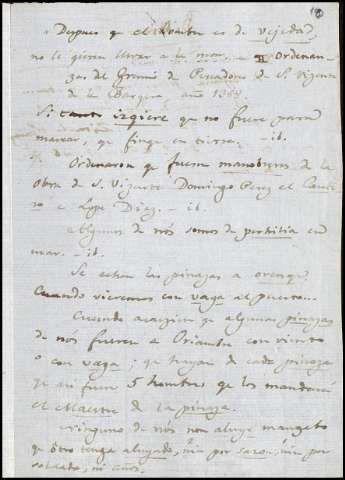 Despues que el Hombre es de vejedad,
no le quieren llevar a la mar, - Ordenan-
zas del Gremio de Pescadores de S. Vizente
de la Barquera, año 1
Si izgiere que no fuere para
marear, que finqe en tierra. - ib.
Ordenaron que fuesen manobreros de la
Obra de S. Vizente Domingo Perez el Cante-
ro e Lope Diez. - ib.
Algunos de nós somos de pertitia en
mar. - ib.
Se echan las pinazas a
Cuando vieremos con vaga al puerto...
Cuando acaezien que algunas pinazas
de nós fueren a con viento
o con vaga; que hayan de cada pinaza
que asi fuere 5 hombres que los mandará
el Maestre de la pinaza.
Ninguno de nós non aluge mangeto
que otro tenga alugado, nin por sazon, nin por
soldada, ni años.